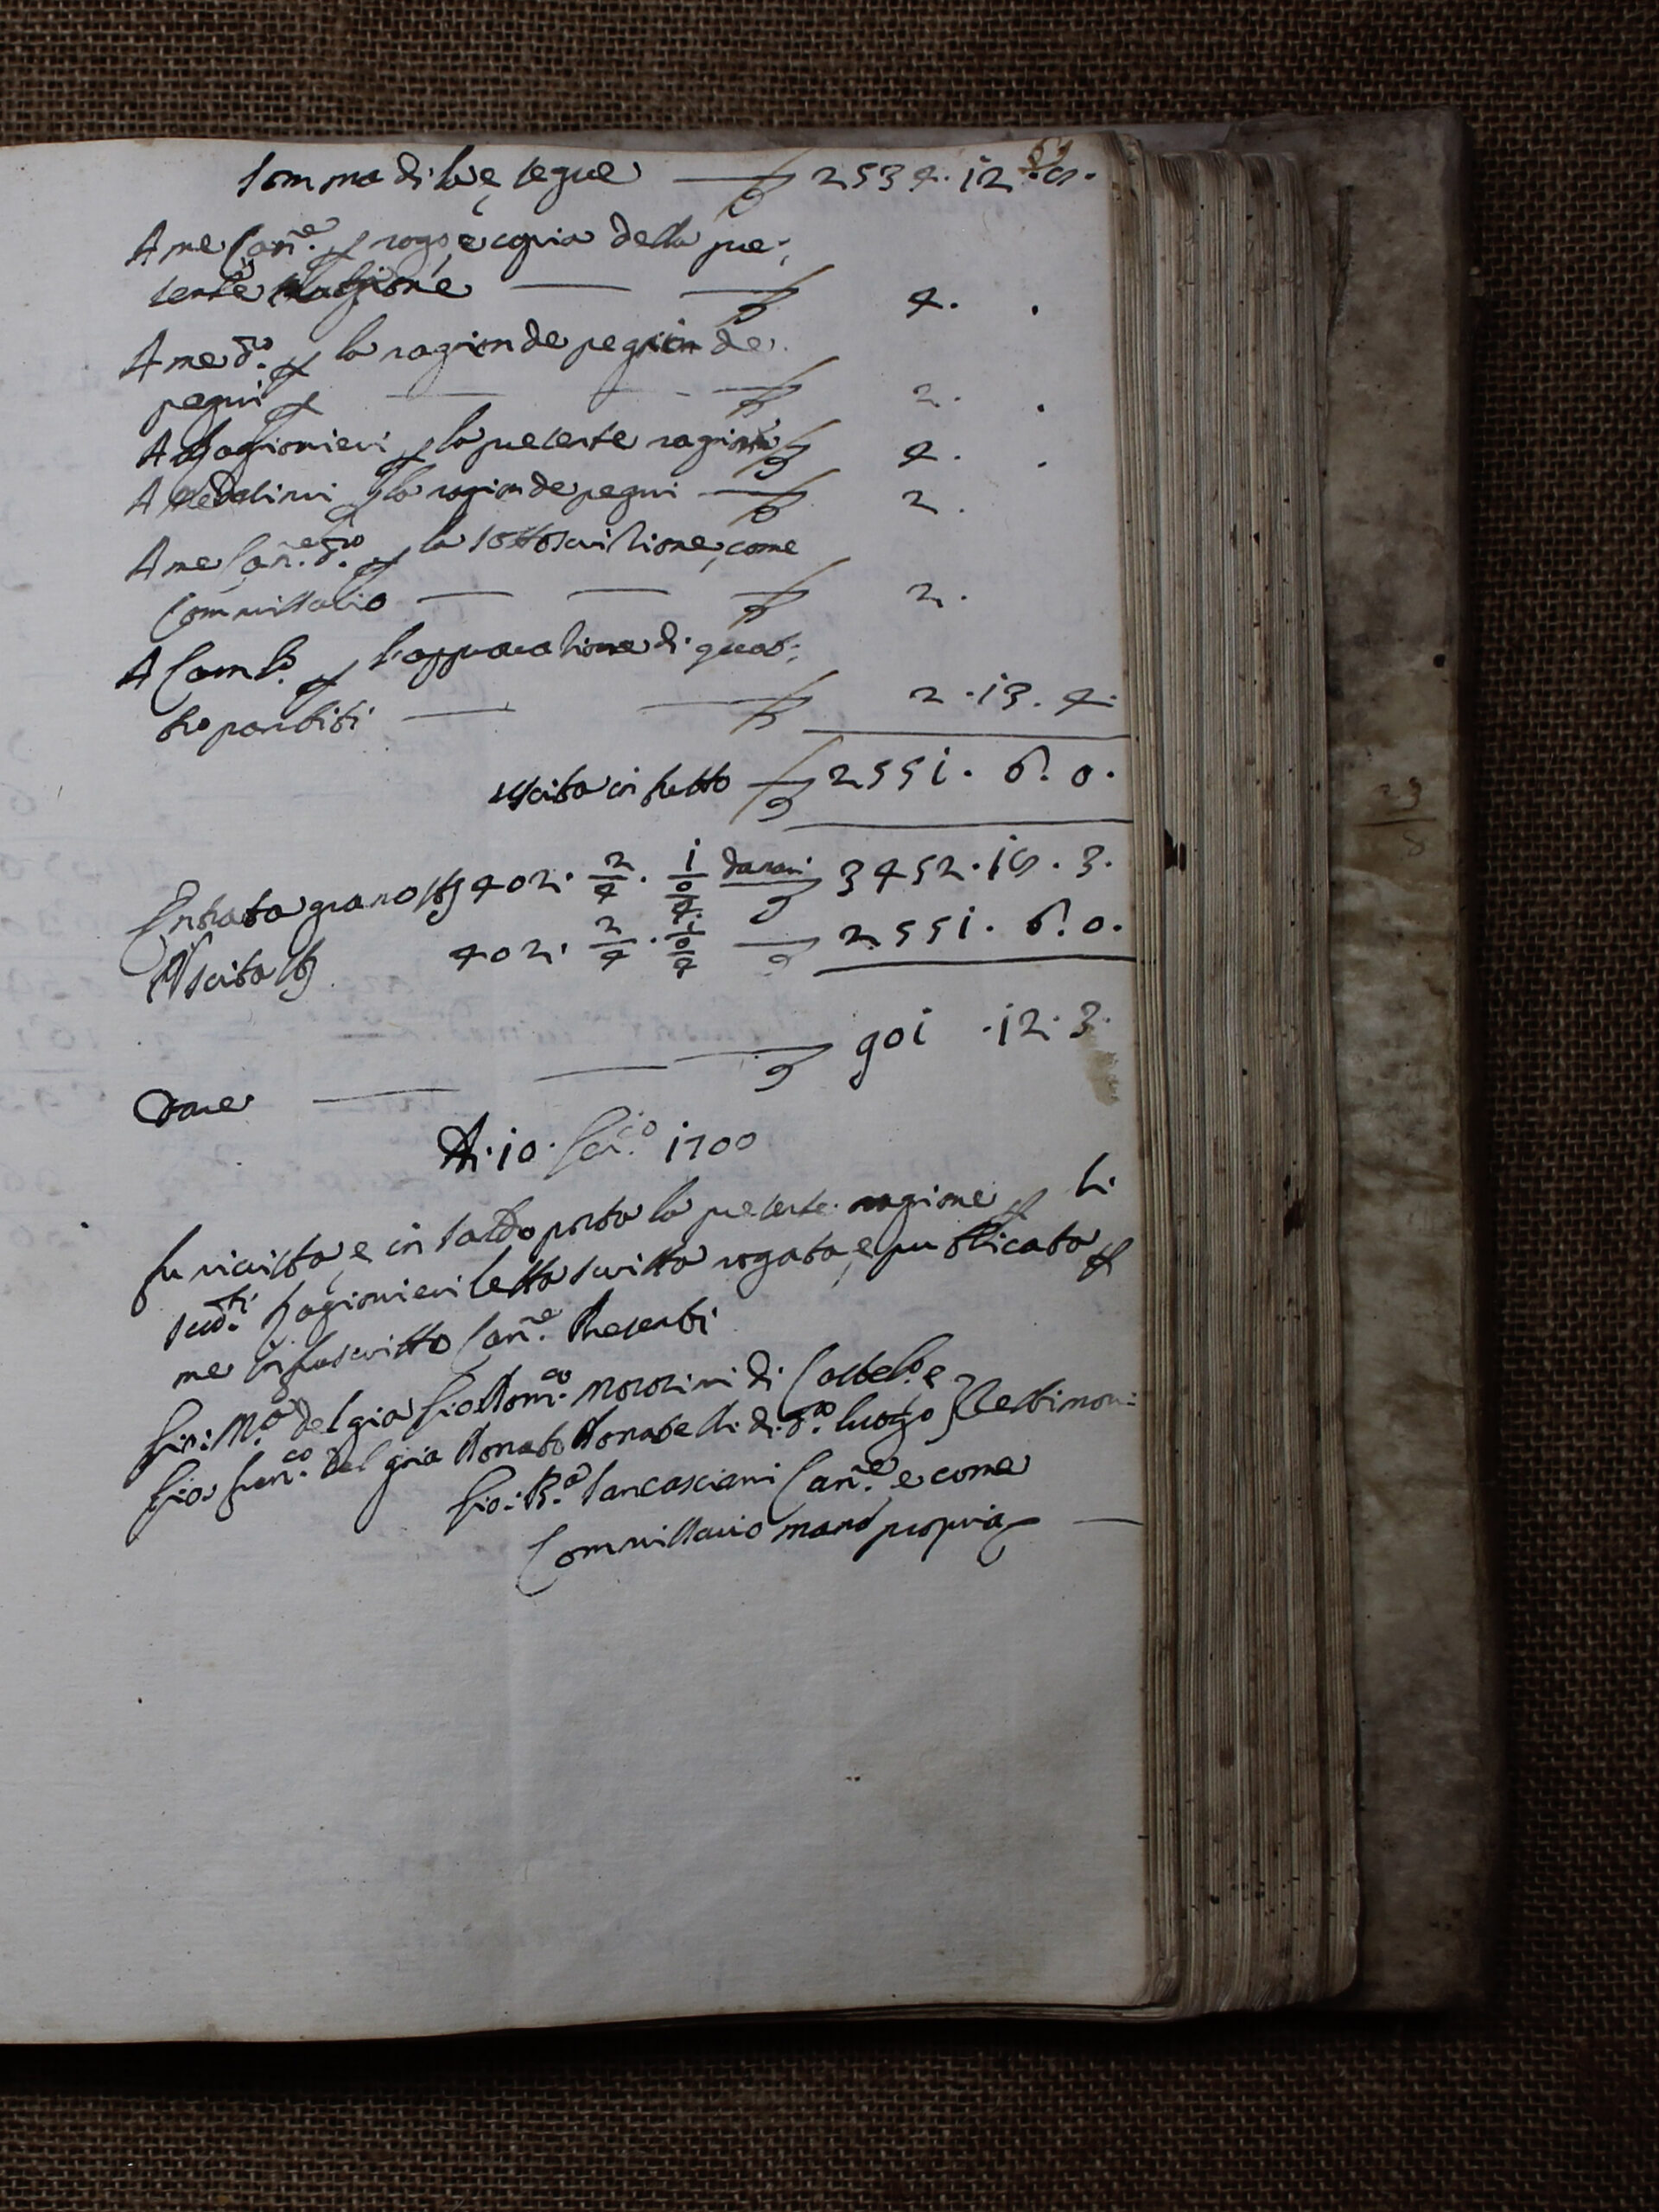 Somma di la, e segue — £ 2534. 12. 8.
A me Can.e p rogo, e copia della pre:
sente ragione — — £ 4. .
A me d.o p la ragion de pegni de
pegni — — £ 2. .
A Ragionieri p la presente ragione £ 4. .
A Medesimi p la ragion de pegni — £ 2.
A me Can.e d.o p la sottoscritione, come
Commissario — — — £ 2.
A Camb.o p l'approvatione di quat:
tro partiti — — £ 2. 13. 4.
uscita in tutto — £ 2551. 6. 0.
Entrata grano st 402. 2/4. 1/0/4 danari £ 3452. 18. 3.
Uscita st 402. 2/4. 1/0/4 — £ 2551. 6. 0.
Dare — — — £ 901 . 12. 3.
A. 10. 1700
fu rivista, e in saldo posta la presente ragione p li
sud.ti Ragionieri letta scritta rogata, e publicata p
me infrascritto Can.e Presenti
Gio: M.a del gia Gio Dom.co Morosini di e
Gio: Fran.co del gia Donato Donatelli di d.o luogo } Testimoni:
Gio: B.a Sancasciani Can.e, e come
Commissario mano propria —